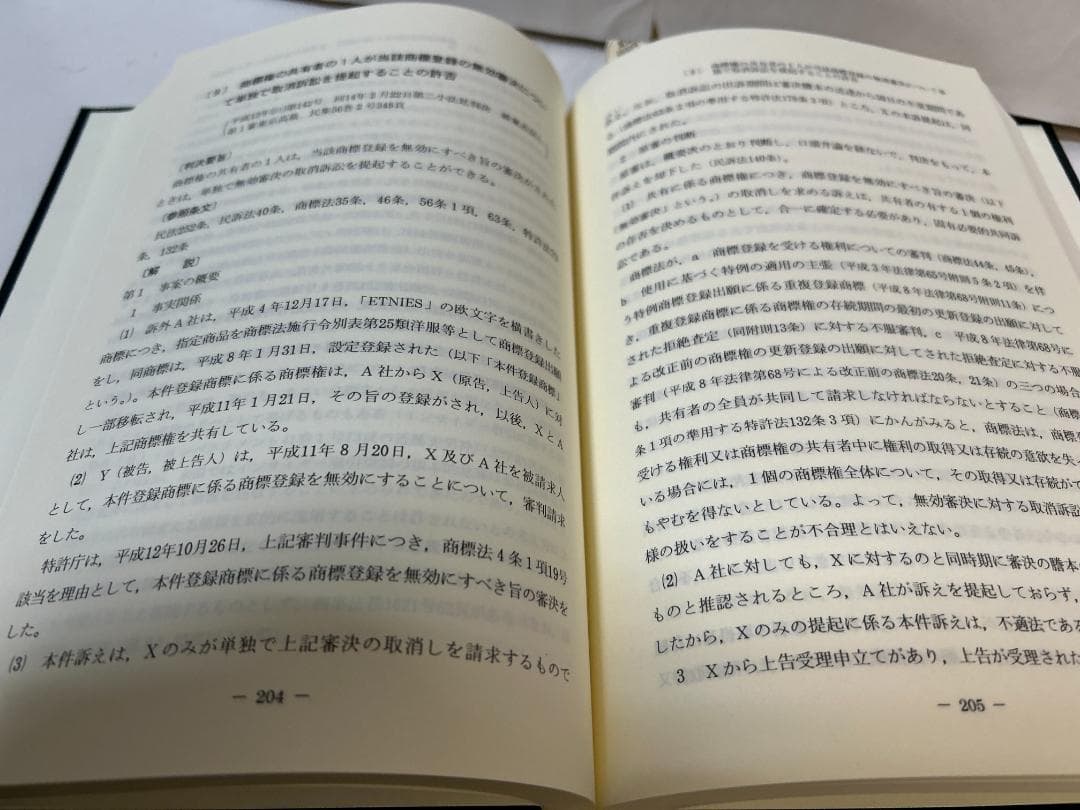 〔9〕 商標権の共有者の1人が当該商標登録の無効審決につい
て単独で取消訴訟を提起することの許否
平成13年(行ヒ)第142号 同14年2月22日第二小法廷判決
第1審東京高裁 民集56巻2号348頁
〔判決要旨〕
商標権の共有者の1人は,当該商標登録を無効にすべき旨の審決がされた
ときは,単独で無効審決の取消訴訟を提起することができる。
〔参照条文〕
民法252条,民訴法40条,商標法35条,46条,56条1項,63条,特許法
条,132条
〔解 説〕
第1 事案の概要
1 事実関係
(1) 訴外A社は,平成4年12月17日,「ETNIES」の欧文字を横書きした
商標につき,指定商品を商標法施行令別表第25類洋服等として商標登録出願
をし,同商標は,平成8年1月31日,設定登録された(以下「本件登録商標」
という。)。本件登録商標に係る商標権は,A社からX(原告,上告人)に対
し一部移転され,平成11年1月21日,その旨の登録がされ,以後,XとA
社は,上記商標権を共有している。
(2) Y(被告,被上告人)は,平成11年8月20日,X及びA社を被請求人
として,本件登録商標に係る商標登録を無効にすることについて,審判請求
をした。
特許庁は,平成12年10月26日,上記審判事件につき,商標法4条1項19号
該当を理由として,本件登録商標に係る商標登録を無効にすべき旨の審決を
した。
(3) 本件訴えは,Xのみが単独で上記審決の取消しを請求するもので
― 204 ―
取消訴訟の出訴期間は審決謄本の送達から30日の不変期間であ
(商標法63条2項の準用する特許法178条3項)ところ,Xの本訴提起は,同
期間内にされた。
2 原審の判断
原審は,概要次のとおり判断し,口頭弁論を経ないで,判決をもって,本
件訴えを却下した(民訴法140条)。
(1) 共有に係る商標権につき,商標登録を無効にすべき旨の審決(以下
「無効審決」という。)の取消しを求める訴えは,共有者の有する1個の権利
の存否を決めるものとして,合一に確定する必要があり,固有必要的共同訴
訟である。
商標法が,a 商標登録を受ける権利についての審判(商標法44条,45条),
b 使用に基づく特例の適用の主張(平成3年法律第65号附則5条2項)を伴
う特例商標登録出願に係る重複登録商標(平成8年法律第68号附則11条)につ
き,重複登録商標に係る商標権の存続期間の最初の更新登録の出願に対して
された拒絶査定(同附則13条)に対する不服審判,c 平成8年法律第68号に
よる改正前の商標権の更新登録の出願に対してされた拒絶査定に対する不服
審判(平成8年法律第68号による改正前の商標法20条,21条)の三つの場合
も,共有者の全員が共同して請求しなければならないとすること(商標
条1項の準用する特許法132条3項)にかんがみると,商標法は,商標
受ける権利又は商標権の共有者中に権利の取得又は存続の意欲を失っ
いる場合には,1個の商標権全体について,その取得又は存続がで
もやむを得ないとしている。よって,無効審決に対する取消訴訟
様の扱いをすることが不合理とはいえない。
(2) A社に対しても,Xに対するのと同時期に審決の謄本
ものと推認されるところ,A社が訴えを提起しておらず,
したから,Xのみの提起に係る本件訴えは,不適法である
3 Xから上告受理申立てがあり,上告が受理された
― 205 ―